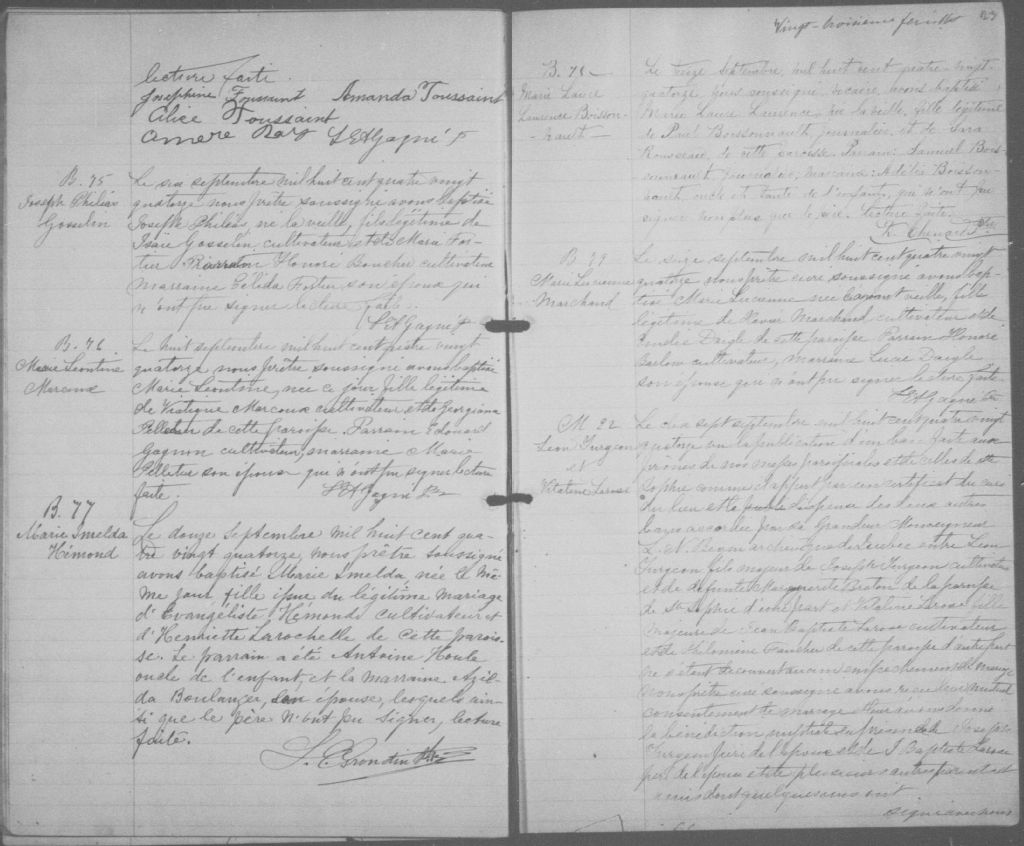 lecture faite.
Josephine Toussaint Amanda Toussaint
Elise Toussaint
L E A Gagné P
B. 75
Joseph Philéas
Gosselin
Le six septembre mil huit cent quatre vingt
quatorze nous prêtre soussigné avons baptisé
Joseph Philéas né la veille, fils légitime de
Isaïe Gosselin cultivateur et de Marie For-
tier Parrain Honoré Boucher cultivateur
marraine Célida Fortier son épouse qui
n'ont pu signer lecture faite.
L E A Gagné P
B. 76
Marie Léontine
Marcoux
Le huit septembre mil huit cent quatre vingt
quatorze, nous prêtre soussigné avons baptisé
Marie Léontine, née ce jour, fille légitime
de Marcoux cultivateur et de Georgiana
Pelletier de cette paroisse. Parrain Edouard
Gagnon cultivateur, marraine Marie
Pelletier son épouse qui n'ont pu signer lecture
faite.
L E A Gagné Ptr
B. 77
Marie Imelda
Hémond
Le douze septembre mil huit cent qua-
tre vingt quatorze, nous prêtre soussigné
avons baptisé Marie Imelda, née le mê-
me jour fille issue du légitime mariage
d'Evangéliste Hémond cultivateur et
d'Henriette Larochelle de cette parois-
se. Le parrain a été Antoine Houle
oncle de l'enfant, et la marraine Azil-
da Boulanger, son épouse, lesquels ain-
si que le père n'ont pu signer, lecture
faite.
Grondin Ptre
Vingt-troisième feuillet 23
B. 78
Marie Laure
Laurence Boisson-
nault
Le onze septembre, mil huit cent quatre-vingt-
quatorze, nous soussigné, vicaire, avons baptisé
Marie Laure Laurence, née la veille, fille légitime
de Paul Boissonnault, journalier, et de Sara
Rousseau, de cette paroisse. Parrain: Samuel Bois-
sonnault journalier, marraine: Adélia Boisson-
nault, oncle et tante de l'enfant, qui n'ont pu
signer non plus que le père. Lecture faite.
Chenard Ptre
B. 79
Marie Lucienne
Marchand
Le seize septembre mil huit cent quatre vingt
quatorze nous prêtre curé soussigné avons bap-
tisé Marie Lucienne née l'avant veille, fille
légitime de Marchand cultivateur et de
Daigle de cette paroisse Parrain Honoré
Barlow cultivateur, marraine Lucie Daigle
son épouse qui n'ont pu signer lecture faite
L E A Gagné Ptr
M 22
Léon Turgeon
et
Vitaline Larose
Le dix sept septembre mil huit cent quatre vingt
quatorze vu la publication d'un ban faite aux
prônes de nos messes paroissiales et de celles de Ste
Sophie comme il appert par un certificat du curé
du lieu et la dispense des deux autres
bans accordée par sa Grandeur Monseigneur
L. N. Bégin archevêque de Québec entre Léon
Turgeon fils majeur de Joseph Turgeon cultivateur
et de défunte Marguerite Breton de la paroisse
de Ste Sophie d'une part et Vitaline Larose fille
majeure de Jean Baptiste Larose cultivateur
et de Philomène Gaucher de cette paroisse d'autre part
ne s'étant découvert aucun empêchement de mariage
nous prêtre curé soussigné avons reçu leur mutuel
consentement de mariage et leur avons donné
la bénédiction nuptiale en présence de Joseph
Turgeon père de l'époux et de J Baptiste Larose
père de l'épouse et de plusieurs autres parents et
amis dont quelques uns ont
signé avec nous